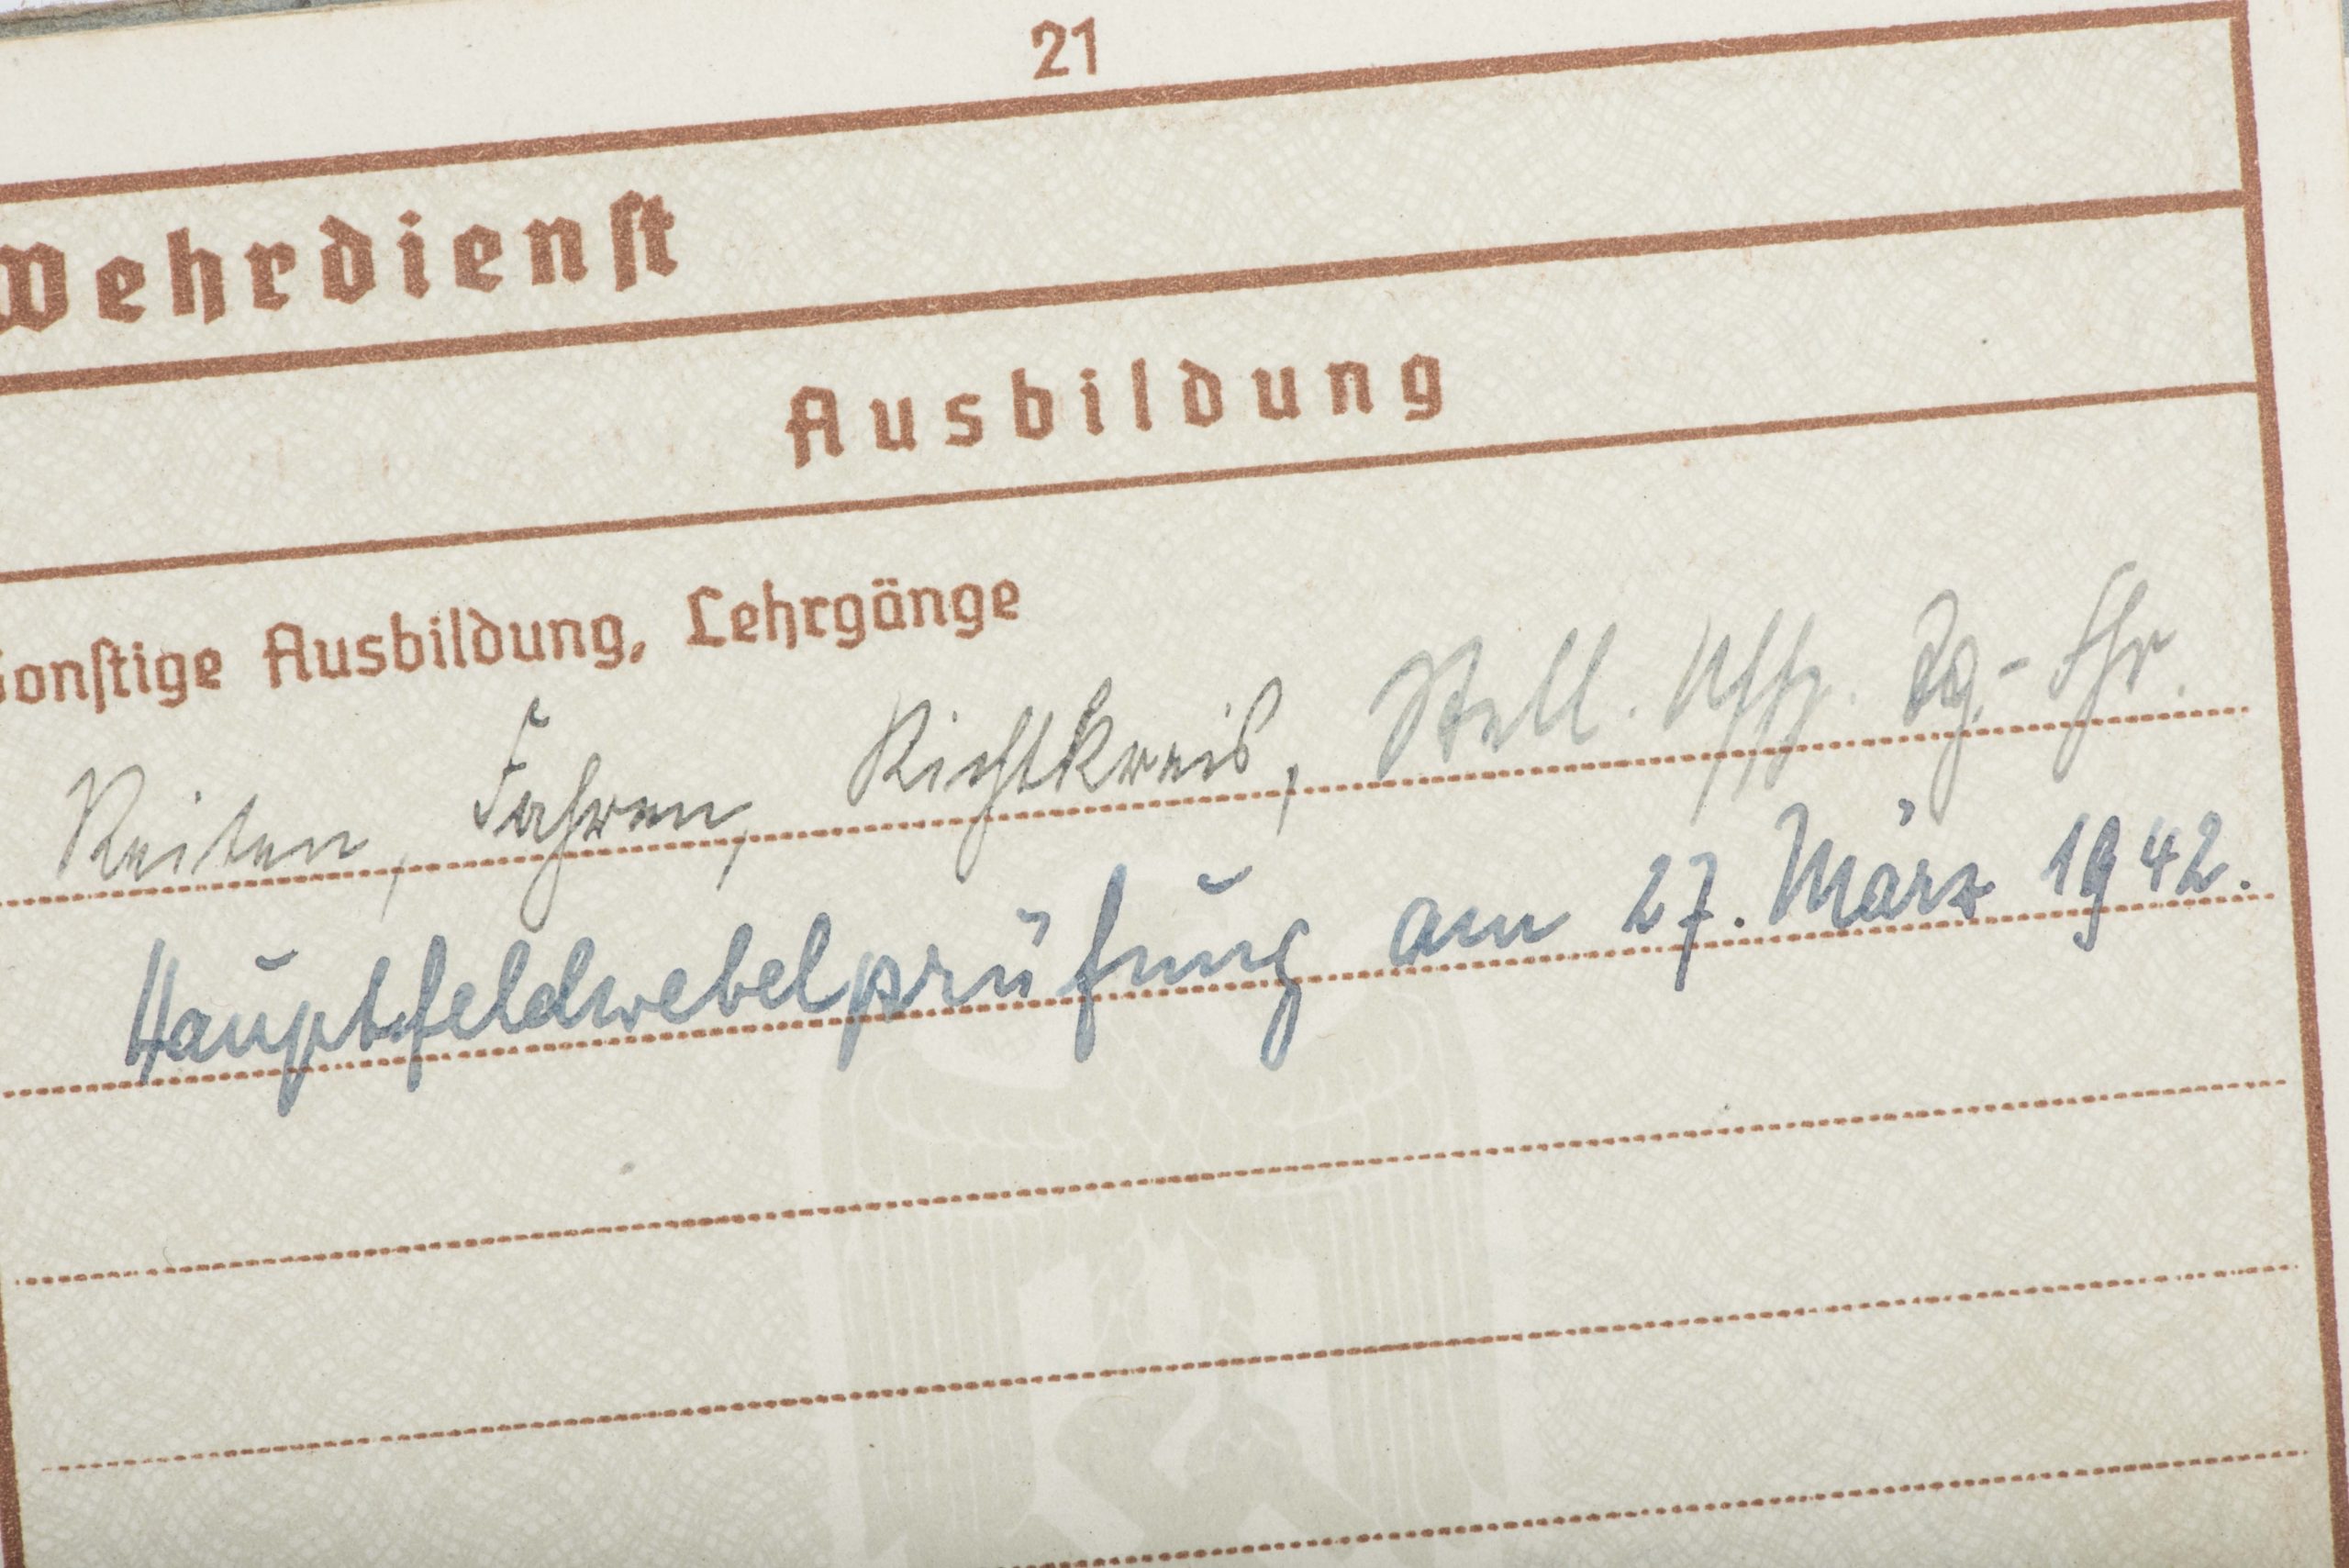 21
Wehrdienst
Ausbildung
Sonstige Ausbildung, Lehrgänge
Reiten, Fahren, Richtkreis, Stell. Uffz. Zg.-Fhr.
Hauptfeldwebelprüfung am 27. März 1942.